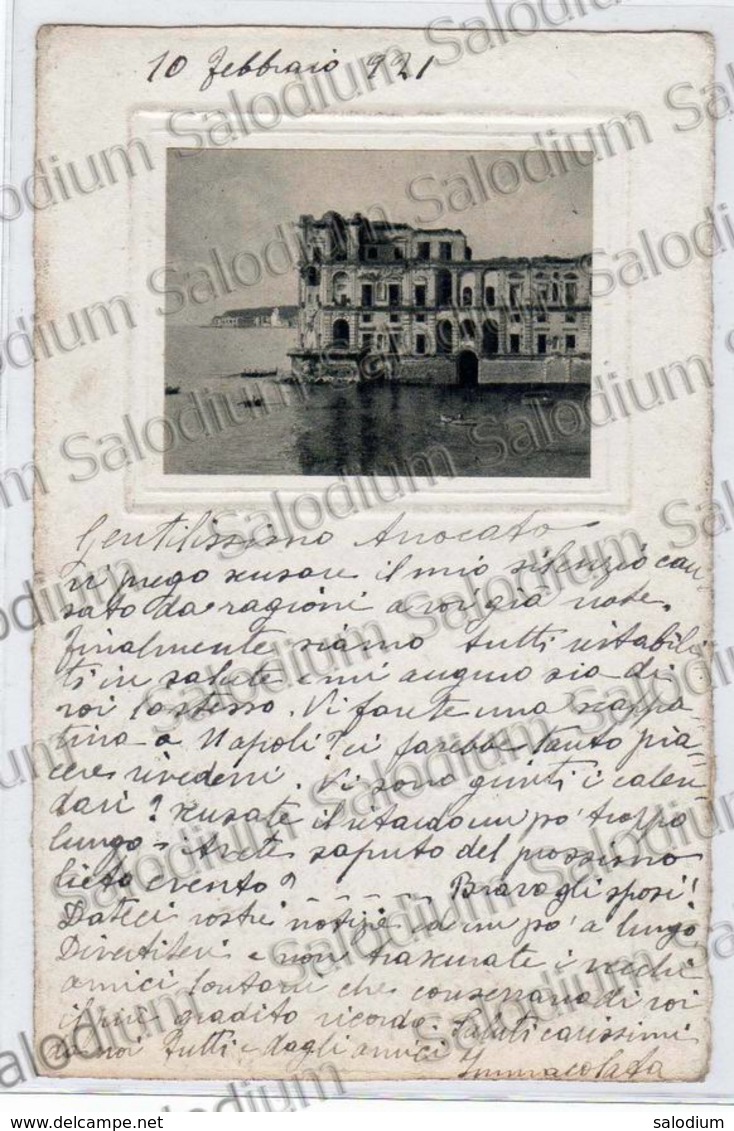 10 Febbraio 921
Gentilissimo Avvocato
vi prego scusare il mio silenzio cau-
sato da ragioni a voi già note.
Finalmente siamo tutti ristabili
ti in salute e mi auguro sia di
voi lo stesso. Vi farete una scappa-
tina a Napoli? ci farebbe tanto pia-
cere rivedervi. Vi sono giunti i calen-
dari? scusate il ritardo un po' troppo
lungo - Avete saputo del prossimo
lieto evento? Bravo gli sposi!
Dateci vostre notizie ed un po' a lungo
Divertitevi e non trascurate i vecchi
amici lontani che conservano di voi
il più gradito ricordo. Saluti carissimi
da noi tutti e dagli amici
Immacolata
www.delcampe.net
salodium